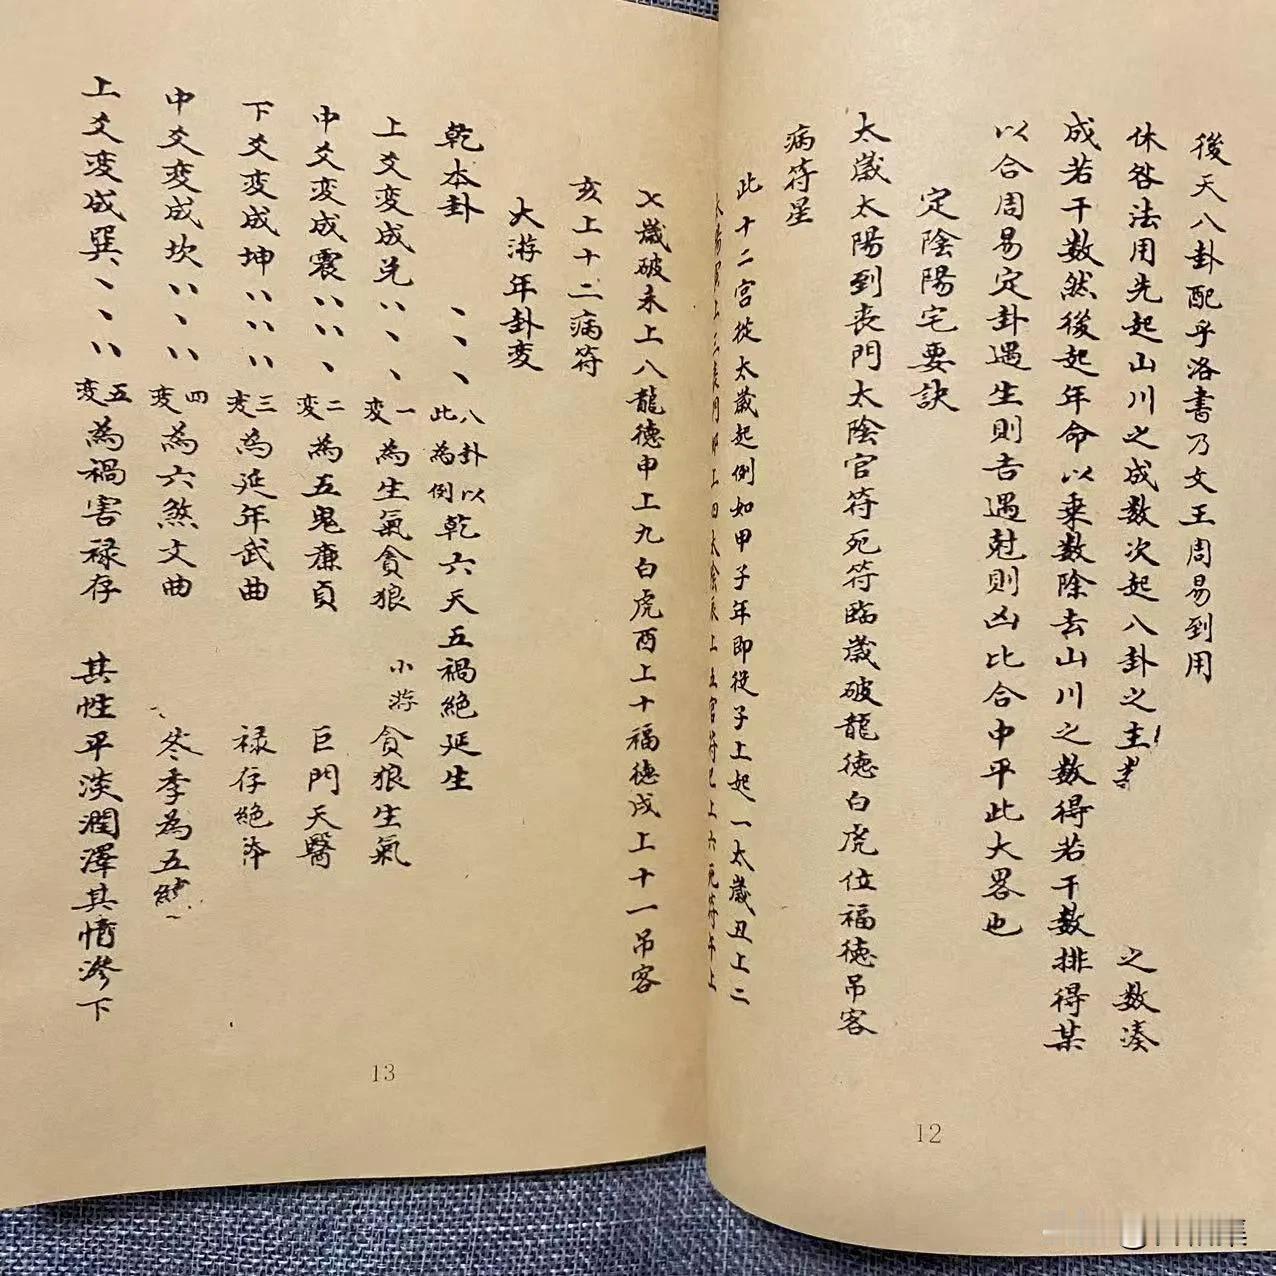 後天八卦配乎洛書乃文王周易到用
休咎法用先起山川之成數次起八卦之主 之數湊
成若干數然後起年命以乘數除去山川之數得若干數排得某
以合周易定卦遇生則吉遇尅則凶比合中平此大畧也
定陰陽宅要訣
太歲太陽到喪門太陰官符死符臨歲破龍德白虎位福德吊客
病符星
此十二宮從太歲起例如甲子年即從子上起一太歲丑上二
太陽寅上三喪門卯上四太陰辰上五官符巳上六死符午上
12
七歲破未上八龍德申上九白虎酉上十福德戌上十一吊客
亥上十二病符
大游年卦変
乾本卦 、、、 八卦以 此為例 乾六天五禍絕延生
上爻変成兑 一変 為生氣貪狼 小游 貪狼生氣
中爻変成震 二変 為五鬼廉貞 巨門天醫
下爻変成坤 三変 為延年武曲 禄存絕
中爻変成坎 四変 為六煞文曲 冬季為五
上爻変成巽 五変 為禍害禄存 其性平淡潤澤其情滲下
13